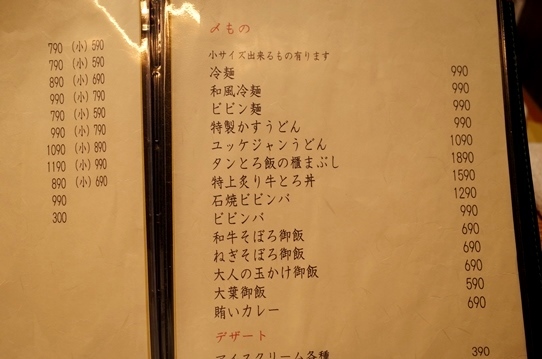 790 (小) 590
790 (小) 590
890 (小) 690
990 (小) 790
790 (小) 590
990 (小) 790
1090 (小) 890
1190 (小) 990
890 (小) 690
990
300
〆もの
小サイズ出来るもの有ります
冷麺 990
和風冷麺 990
ビビン麺 990
特製かすうどん 990
ユッケジャンうどん 1090
タンとろ飯の櫃まぶし 1890
特上炙り牛とろ丼 1590
石焼ビビンバ 1290
ビビンバ 990
和牛そぼろ御飯 690
ねぎそぼろ御飯 690
大人の玉かけ御飯 690
大葉御飯 590
賄いカレー 690
デザート
アイスクリーム各種 390